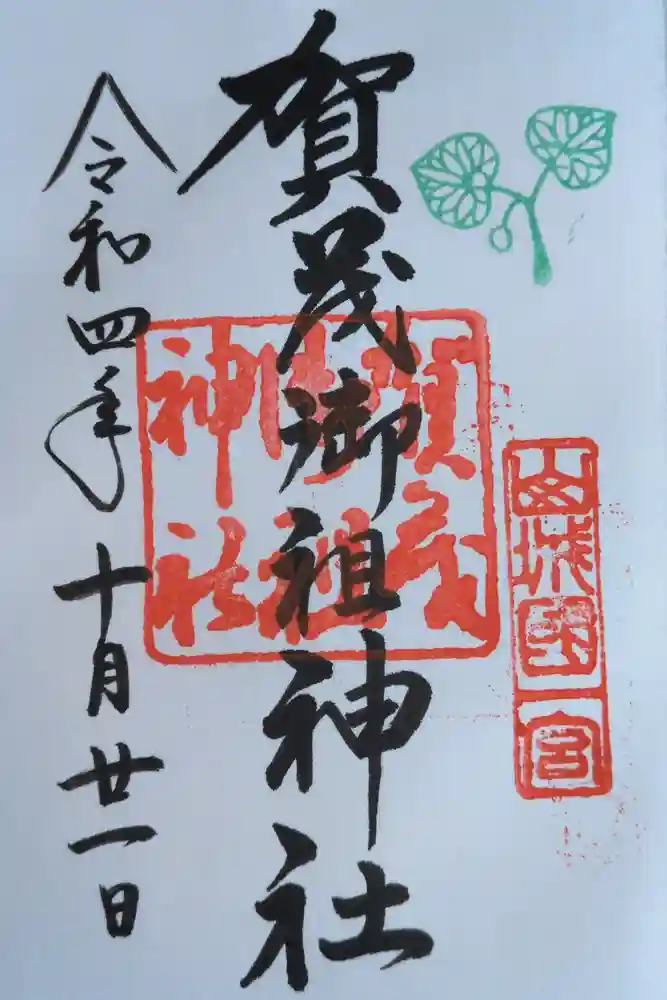 山城国一宮
賀茂御祖神社
賀茂
御祖
神社
令和四年十月廿一日